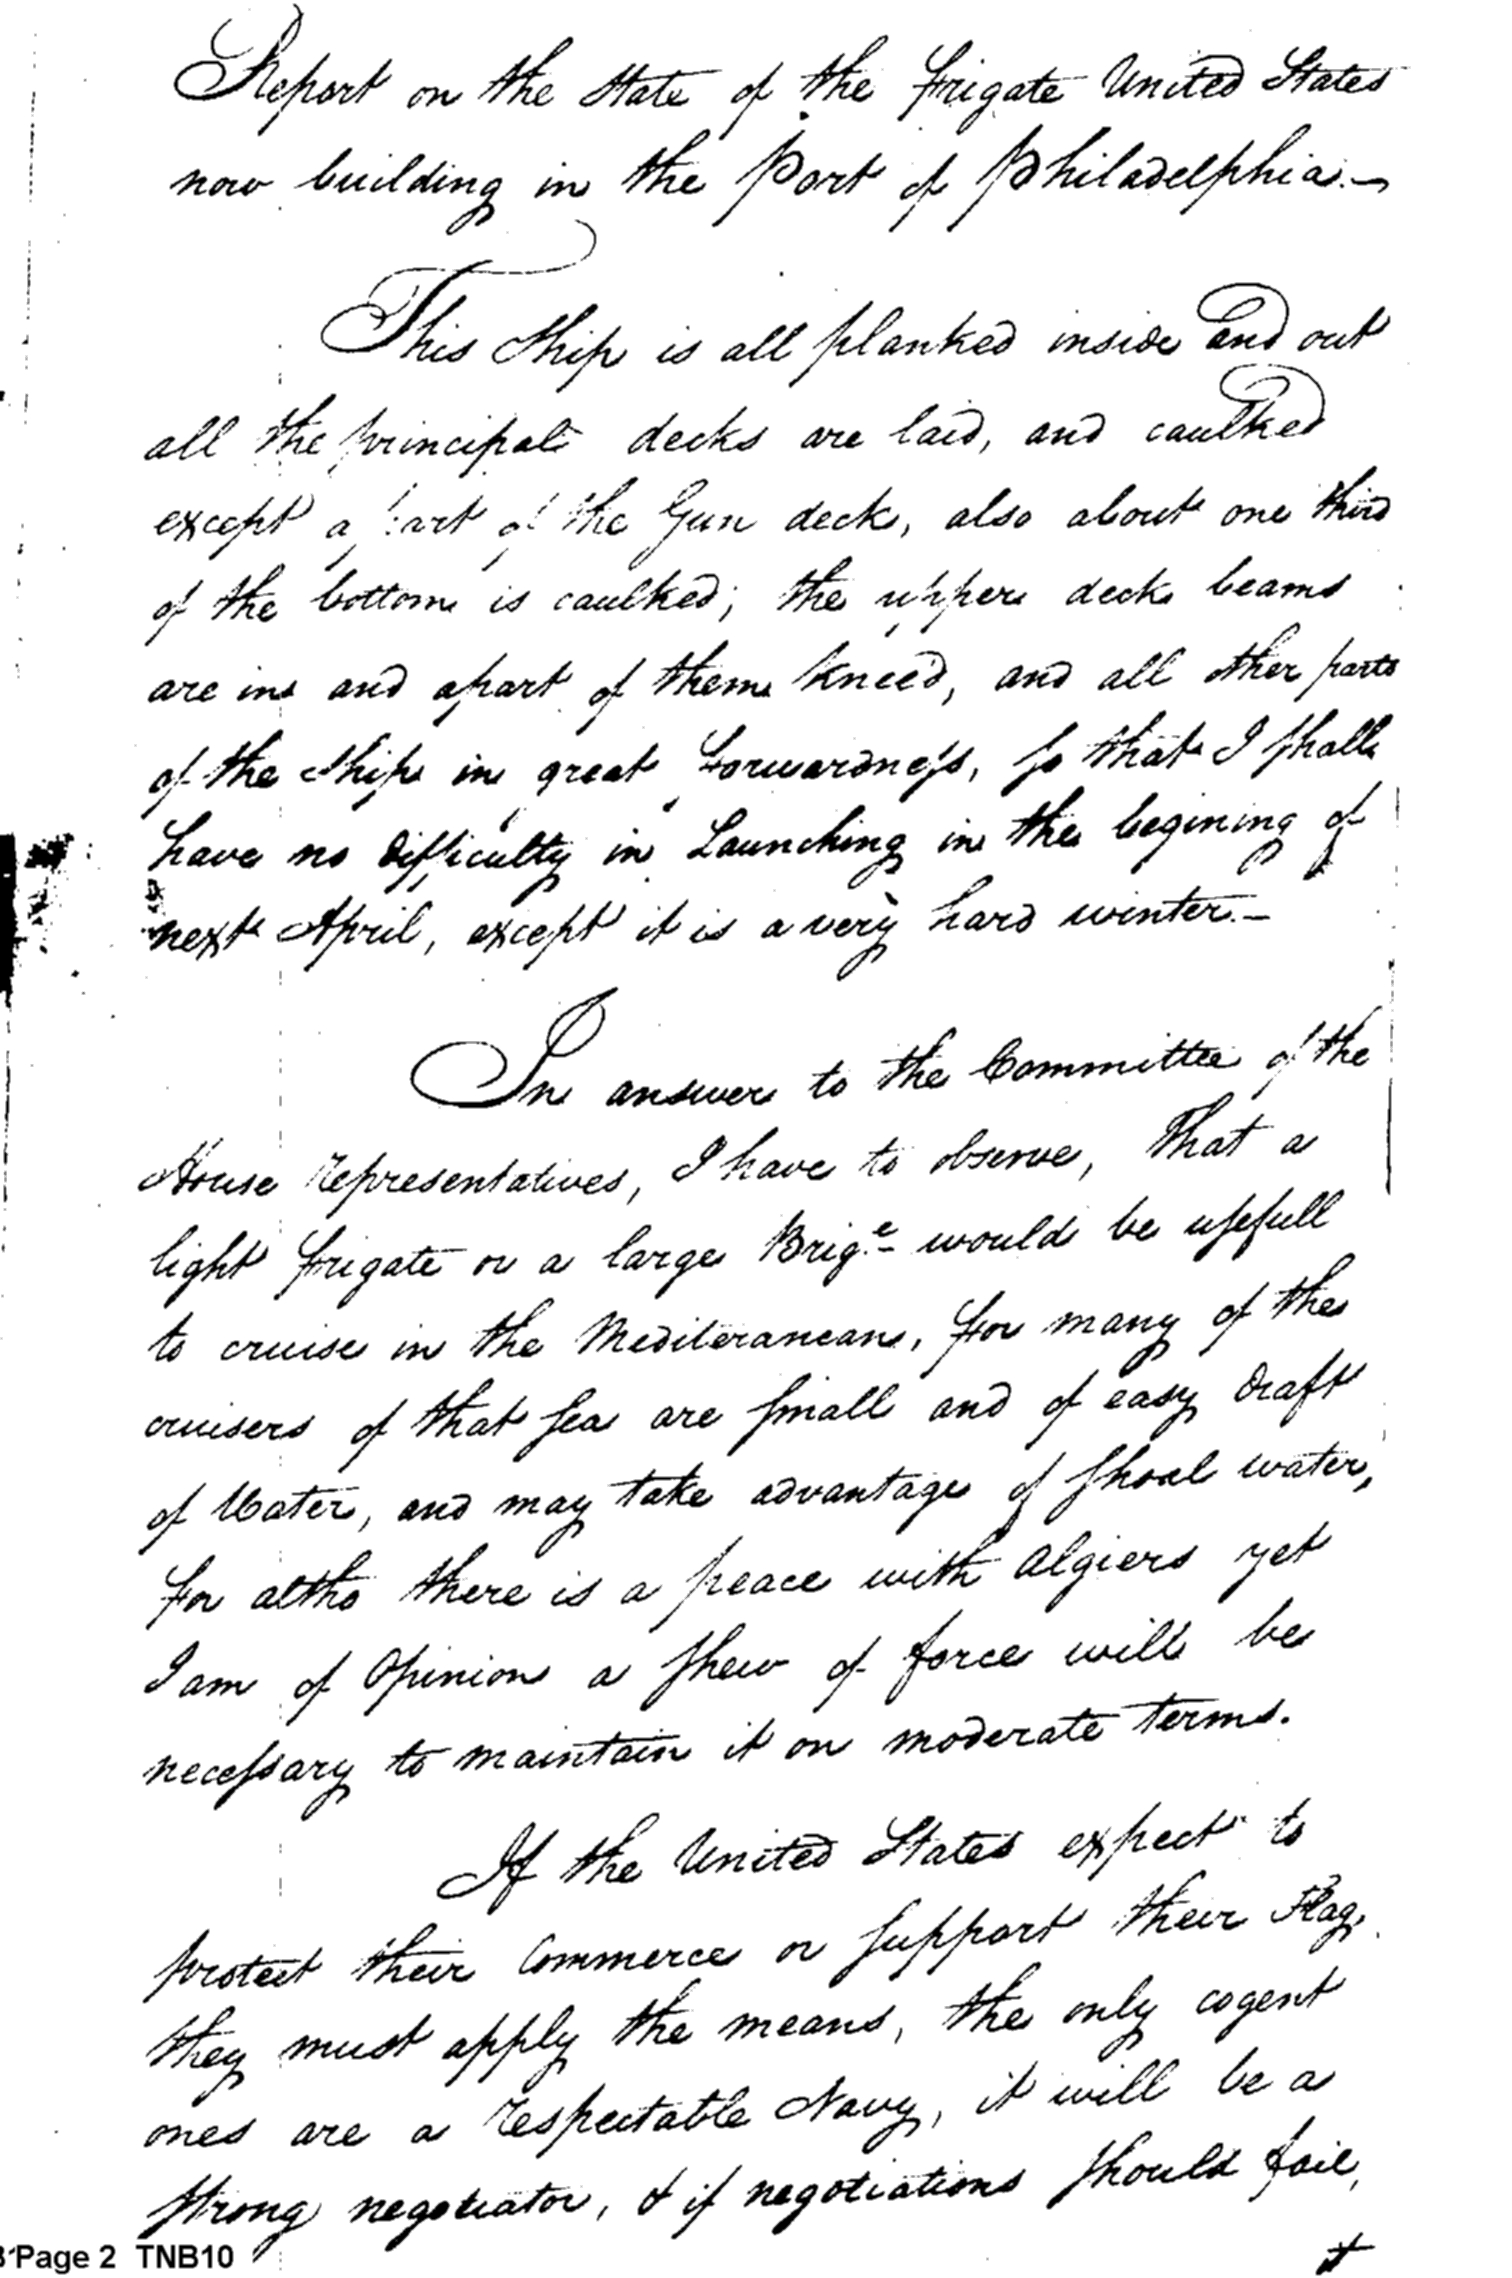 Report on the State of the frigate United States
now building in the Port of Philadelphia.—
This Ship is all planked inside and out
all the principal decks are laid, and caulked
except a part of the Gun deck, also about one third
of the bottom is caulked; the upper deck beams
are in and apart of them kneed, and all other parts
of the Ship in great forwardness, so that I shall
have no difficulty in Launching in the begining of
next April, except it is a very hard winter.—
In answer to the Committee of the
House representatives, I have to observe, That a
light frigate or a large Brig.e would be usefull
to cruise in the Mediteranean, for many of the
cruisers of that sea are small and of easy draft
of Water, and may take advantage of shoal water,
for altho there is a peace with Algiers yet
I am of Opinion a shew of force will be
necessary to maintain it on moderate terms.
If the United States expect to
protect their Commerce or support their Flag,
they must apply the means, the only cogent
ones are a respectable Navy, it will be a
strong negotiator, & if negotiations should fail,
it
Page 2 TNB10